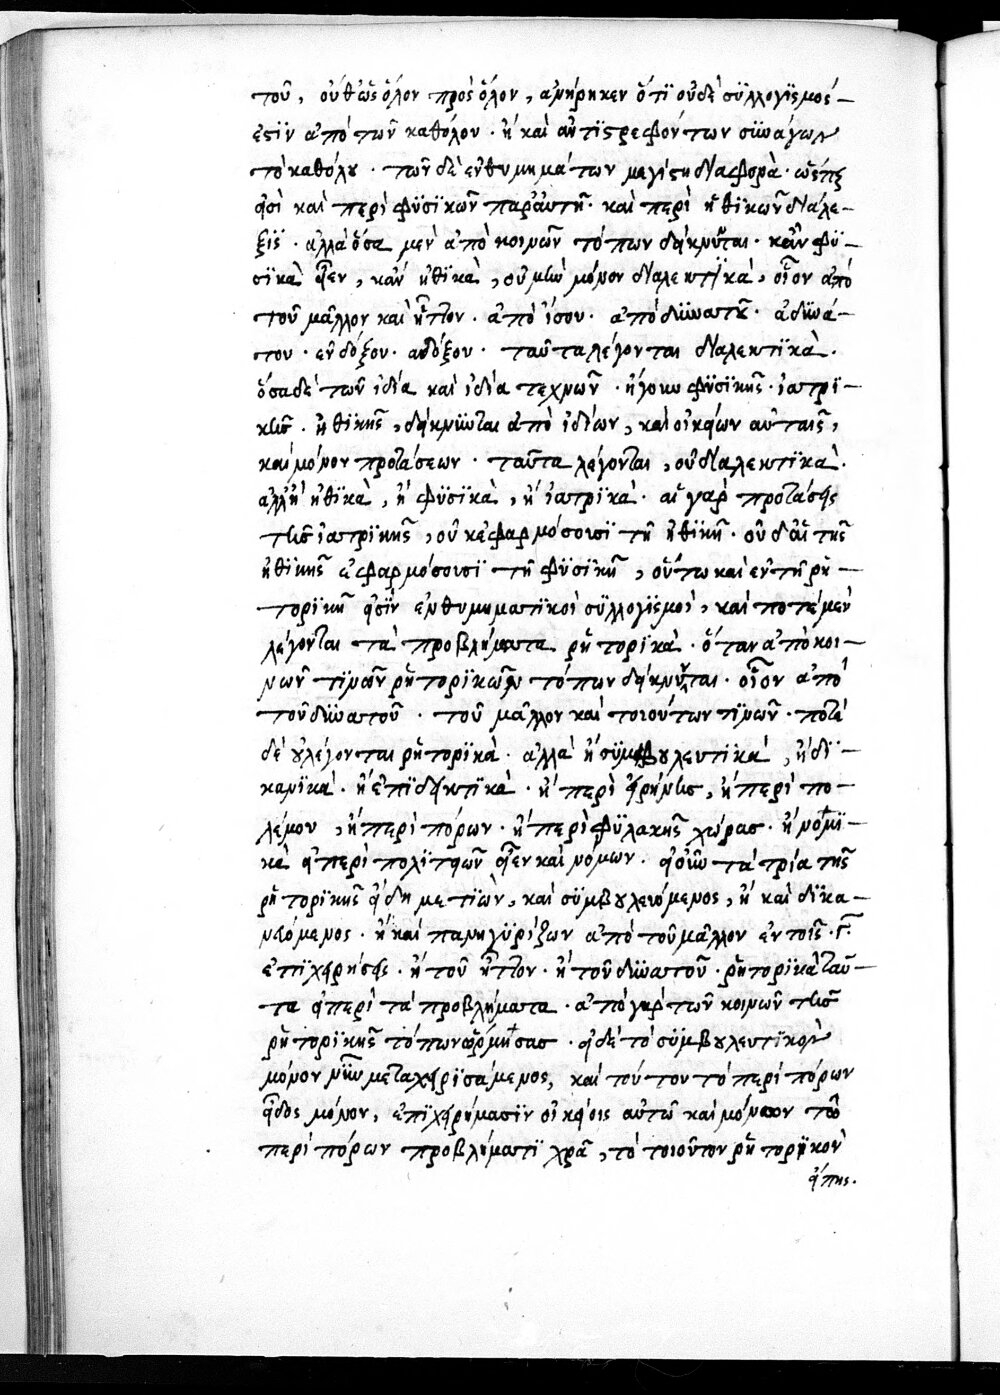 του, οὐθ ὡς ὅλον πρὸς ὅλον, ἀνήρηκεν ὅτι οὐδὲ συλλογισμός
ἐστιν ἀπὸ των καθόλου · ἢ καὶ ἀντιστρεφόντων συνάγων
τὸ καθόλου · των δὲ ἐνθυμημάτων μεγίστη διαφορὰ · ὥσπερ
εἰσὶ καὶ περὶ φυσικων · καὶ περὶ ἠθικων διάλε-
ξις · ἀλλὰ ὅσα μὲν ἀπὸ κοινων τόπων δείκνυται · κἂν φυ-
σικὰ εἶεν, κἂν ἠθικὰ, οὐ μὴν μόνον διαλεκτικὰ, οἷον ἀπὸ
του μαλλον καὶ ἧττον · ἀπὸ ἴσου · ἀπὸ δυνατου · ἀδυνά-
του · ἐνδόξου · ἀδόξου · ταυτα λέγονται διαλεκτικὰ ·
ὅσα δὲ των ἰδία καὶ ἰδία τεχνων · ἤγουν φυσικης · ἰατρι-
κης · ἠθικης, δείκνυνται ἀπὸ ἰδίων, καὶ οἰκείων αὐταις,
καὶ μόνον προτάσεων · ταυτα λέγονται, οὐ διαλεκτικὰ ·
ἀλλ᾽ ἢ ἠθικὰ, ἢ φυσικὰ, ἢ ἰατρικὰ · αἱ γὰρ προτάσεις
της ἰατρικης, οὐκ ἐφαρμόσουσι τῇ ἠθικῇ · οὐδ᾽ αἱ της
ἠθικης ἐφαρμόσουσι τῇ φυσικῇ, οὕτω καὶ ἐν τῇ ῥη-
τορικῇ εἰσὶν ἐνθυμηματικοὶ συλλογισμοὶ, καὶ ποτὲ μὲν
λέγονται τὰ προβλήματα ῥητορικὰ · ὅταν ἀπὸ κοι-
νων τινων ῥητορικων τόπων δείκνυται · οἷον ἀπὸ
του δυνατου · του μαλλον καὶ τοιούτων τινων · ποτὲ
δὲ οὐ λέγονται ῥητορικὰ · ἀλλὰ ἢ συμβουλευτικὰ, ἢ δι-
κανικὰ · ἢ ἐπιδεικτικὰ · ἢ περὶ εἰρήνης, ἢ περὶ πο-
λέμου, ἢ περὶ πόρων · ἢ περὶ φυλακης χώρας · ἢ νομι-
κὰ εἰ περὶ πολιτειων εἶεν καὶ νόμων · εἰ οὖν τὰ τρία της
ῥητορικης εἴδη μετιὼν, καὶ συμβουλευόμενος, ἢ καὶ δικα-
νευόμενος · ἢ καὶ πανηγυρίζων ἀπὸ του μαλλον ἐν τοις · γ ·
ἐπιχειρήσεις · ἢ του ἧττον · ἢ του δυνατου · ῥητορικὰ ταυ-
τα εἰ περὶ τὰ προβλήματα · ἀπὸ γὰρ των κοινων της
ῥητορικης τόπων ὥρμησας · εἰ δὲ τὸ συμβουλευτικὸν
μόνον μεταχειρισάμενος, καὶ τούτου τὸ περὶ πόρων
εἶδος μόνον, ἐπιχειρήμασιν οἰκείοις αὐτῷ καὶ μόνον τῷ
περὶ πόρων προβλήματι χρᾷ, τὸ τοιουτον ῥητορικὸν
εἴπης ·